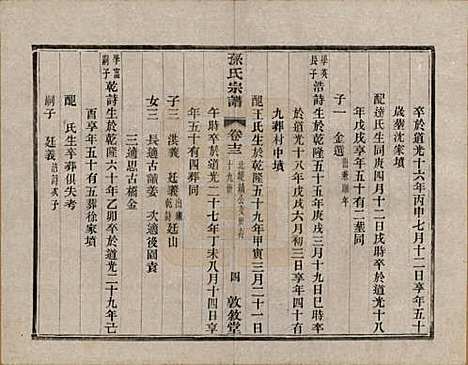 卒於道光十六年丙申七月十二日享年五十
歲塟沈家墳
達氏生同庚四月十二日戌時卒於道光十八
年戊戌享年五十有二塟同
子一　金選
學英長子
誥詩生於乾隆五十五年庚戌三月十九日巳時卒
於道光十八年戊戌六月初三日享年四十有
九葬村中墳
配王氏生於乾隆五十九年甲寅三月二十一日
午時卒於道光二十七年丁未八月十四日享
年五十有四葬同
孫氏宗譜
卷十三
十九世
四
敦敘堂
子三　洪義　廷義　廷山
女三　長適古隔姜　次適後圖袁
三適思古橋金
學富嗣子
乾詩生於乾隆六十年乙卯卒於道光二十九年己
酉享年五十有五葬徐家墳
配　氏生卒葬俱失考
嗣子　廷義誥詩次子